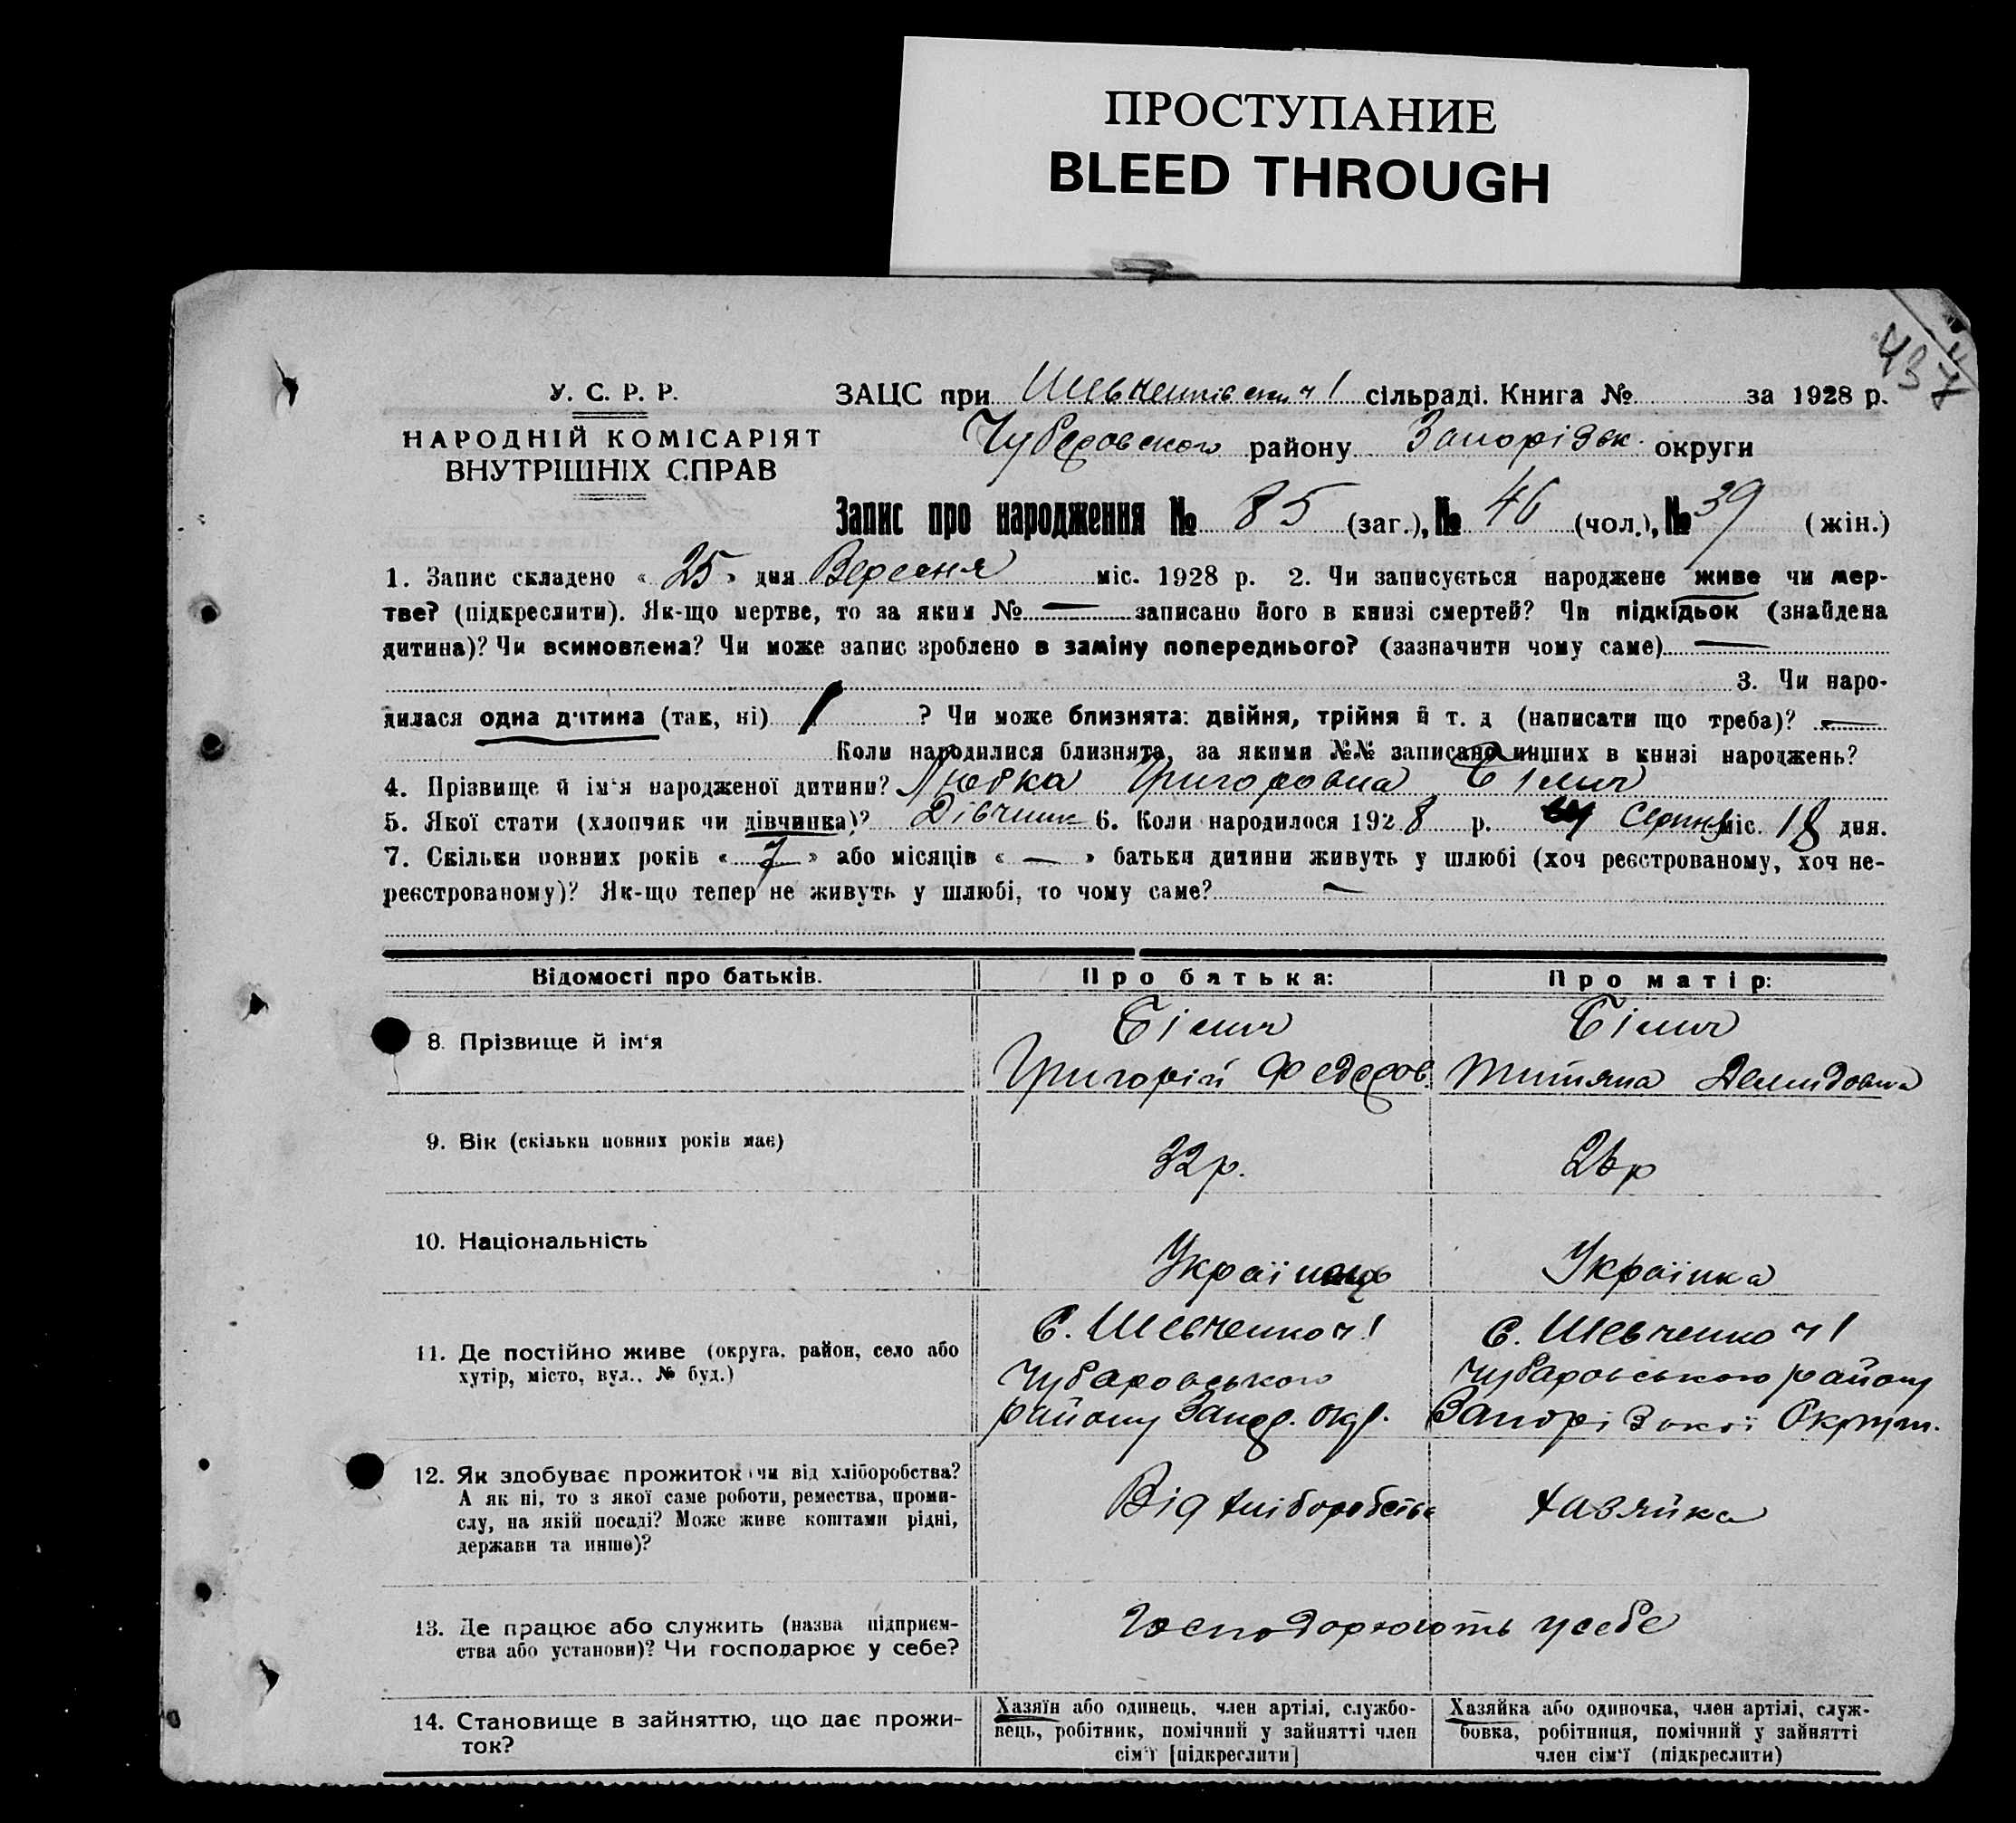 ПРОСТУПАНИЕ
BLEED THROUGH
437
У. С. Р. Р.
НАРОДНІЙ КОМІСАРІЯТ
ВНУТРІШНІХ СПРАВ
ЗАЦС при Шевченківськ ч I сільраді. Книга № за 1928 р.
Чубаровского району Запорізьк. округи
Запис про народження № 85 (заг.), № 46 (чол.), № 39 (жін.)
1. Запис складено « 25 » дня Вересня міс. 1928 р. 2. Чи записується народжене живе чи мер-
тве? (підкреслити). Як-що мертве, то за яким № — записано його в книзі смертей? Чи підкідьок (знайдена
дитина)? Чи всиновлена? Чи може запис зроблено в заміну попереднього? (зазначити чому саме) —
3. Чи наро-
дилася одна дитина (так, ні) 1 ? Чи може близнята: двійня, трійня й т. д (написати що треба)? —
Коли народилися близнята, за якими №№ записано инших в книзі народжень?
4. Прізвище й ім'я народженої дитини? Любка Григоровна Білич
5. Якої стати (хлопчик чи дівчинка)? Дівчинк 6. Коли народилося 1928 р. Серпня міс. 18 дня.
7. Скільки повних років « 7 » або місяців « — » батьки дитини живуть у шлюбі (хоч реєстрованому, хоч не-
реєстрованому)? Як-що тепер не живуть у шлюбі, то чому саме? —
Відомості про батьків. Про батька: Про матір:
8. Прізвище й ім'я
Білич
Григорій Федоров.
Білич
Титяна Демидовна
9. Вік (скільки повних років має)
32 р.
26 р
10. Національність
Українець
Українка
11. Де постійно живе (округа, район, село або
хутір, місто, вул., № буд.)
С. Шевченко ч I
Чубаровського
району Запор. окр.
С. Шевченко ч I
Чубаровського району
Запорізької Округи.
12. Як здобуває прожиток чи від хліборобства?
А як ні, то з якої саме роботи, ремества, проми-
слу, на якій посаді? Може живе коштами рідні,
держави та инше)?
Від хліборобства
хазяйка
13. Де працює або служить (назва підприєм-
ства або установи)? Чи господарює у себе?
Господорюють у себе
14. Становище в зайняттю, що дає прожи-
ток?
Хазяїн або одинець, член артілі, службо-
вець, робітник, помічний у зайнятті член
сім'ї [підкреслити]
Хазяйка або одиночка, член артілі, служ-
бовка, робітниця, помічний у зайнятті
член сім'ї (підкреслити)